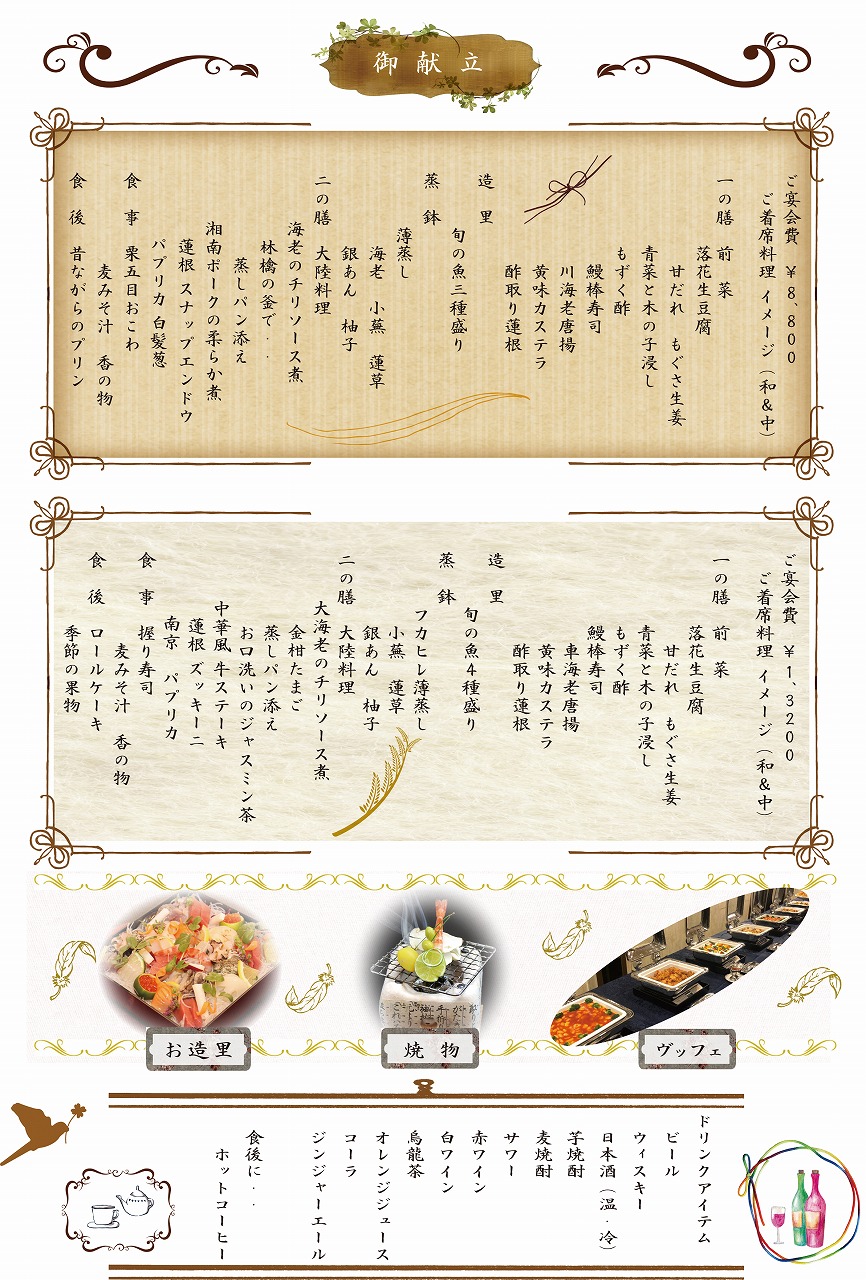 御献立
ご宴会費 ¥8,800
ご着席料理 イメージ (和&中)
一の膳 前菜
落花生豆腐
甘だれ もぐさ生姜
青菜と木の子浸し
もずく酢
鰻棒寿司
川海老唐揚
黄味カステラ
酢取り蓮根
造里
旬の魚三種盛り
蒸鉢
薄蒸し
海老 小蕪 蓮草
銀あん 柚子
二の膳 大陸料理
海老のチリソース煮
林檎の釜で・・
蒸しパン添え
湘南ポークの柔らか煮
蓮根 スナップエンドウ
パプリカ 白髪葱
食事 栗五目おこわ
麦みそ汁 香の物
食後 昔ながらのプリン
ご宴会費 ¥1,3200
ご着席料理 イメージ (和&中)
一の膳 前菜
落花生豆腐
甘だれ もぐさ生姜
青菜と木の子浸し
もずく酢
鰻棒寿司
車海老唐揚
黄味カステラ
酢取り蓮根
造里
旬の魚4種盛り
蒸鉢
フカヒレ薄蒸し
小蕪 蓮草
銀あん 柚子
二の膳 大陸料理
大海老のチリソース煮
金柑たまご
蒸しパン添え
お口洗いのジャスミン茶
中華風 牛ステーキ
蓮根 ズッキーニ
南京 パプリカ
食事 握り寿司
麦みそ汁 香の物
食後 ロールケーキ
季節の果物
お造里
焼物
ヴッフェ
ドリンクアイテム
ビール
ウィスキー
日本酒(温・冷)
芋焼酎
麦焼酎
サワー
赤ワイン
白ワイン
烏龍茶
オレンジジュース
コーラ
ジンジャーエール
食後に・・
ホットコーヒー